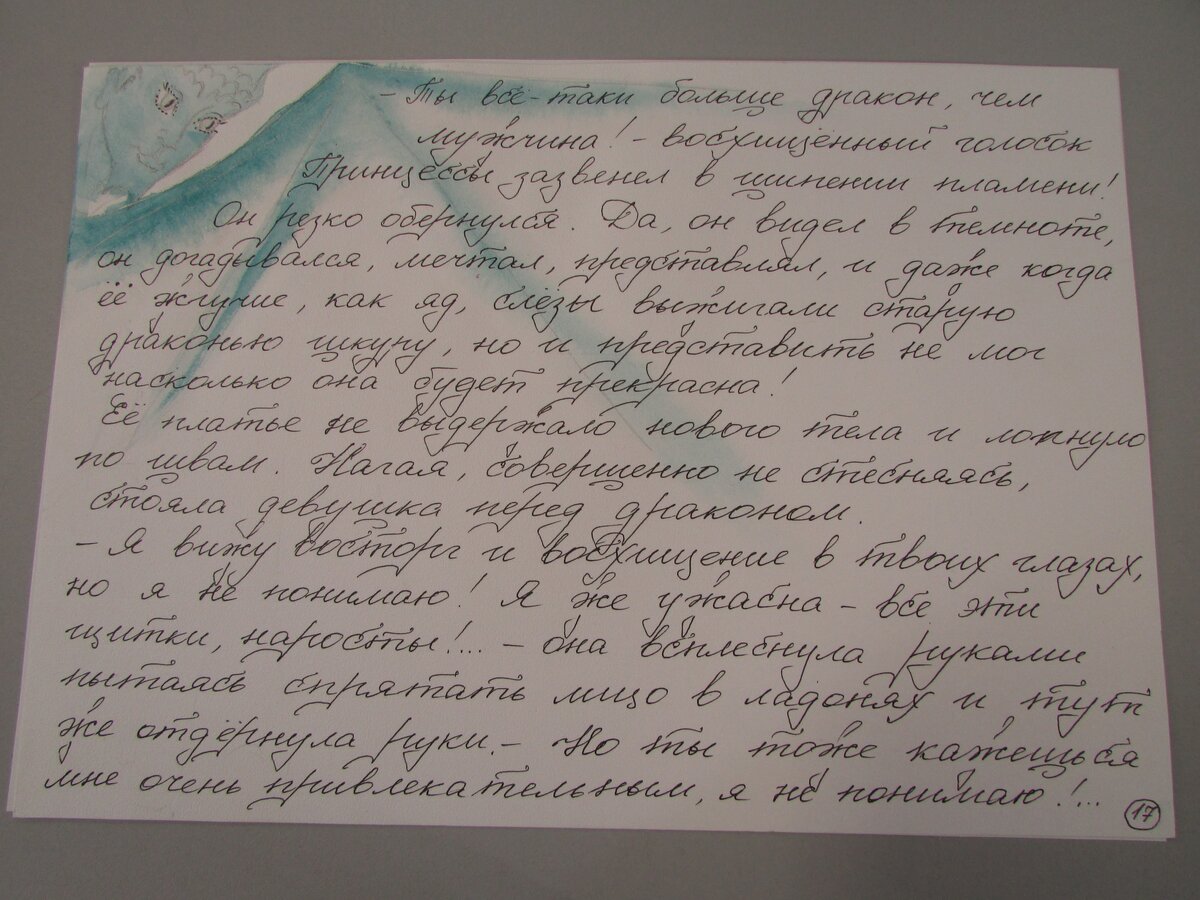 - Ты всё-таки больше дракон, чем
мужчина! - восхищённый голосок
Принцессы зазвенел в шипении пламени!
Он резко обернулся. Да, он видел в темноте,
он догадывался, мечтал, представлял, и даже когда
её жгучие, как яд, слёзы выжигали старую
драконью шкуру, но и представить не мог
насколько она будет прекрасна!
Её платье не выдержало нового тела и лопнуло
по швам. Нагая, совершенно не стесняясь,
стояла девушка перед драконом.
- Я вижу восторг и восхищение в твоих глазах,
но я не понимаю! Я же ужасна - все эти
щитки, наросты!... - она всплеснула руками
пытаясь спрятать лицо в ладонях и тут
же отдёрнула руки. - Но ты тоже кажешься
мне очень привлекательным, я не понимаю!...
17